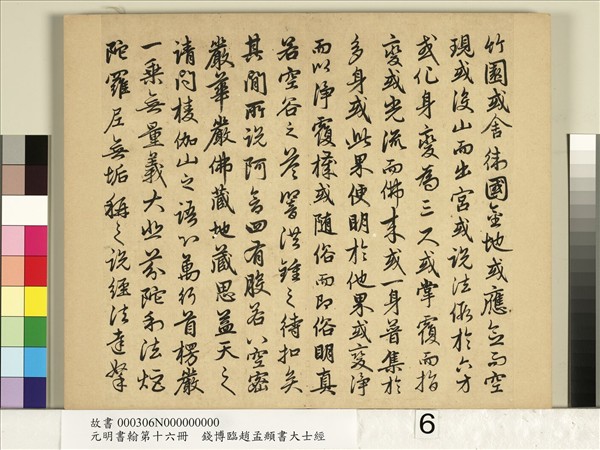 竹園或舍衛國金地或應念而空
現或沒山而出宮或說法依於六方
或化身變為三尺或掌覆而指
變或光流而佛来或一身普集於
多身或此果便明於他果或變淨
而以淨覆穢或随俗而即俗明真
若空谷之荅響洪鍾之待扣矣
其間所說阿含四有般若八空密
嚴華嚴佛藏地藏思益天之
請問楞伽山之語心萬行首楞嚴
一乗無量義大悲芬陀利法炬
陀羅尼無垢稱之說經法達拏
故書 000306N000000000
元明書翰第十六冊 錢博臨趙孟頫書大士經
6